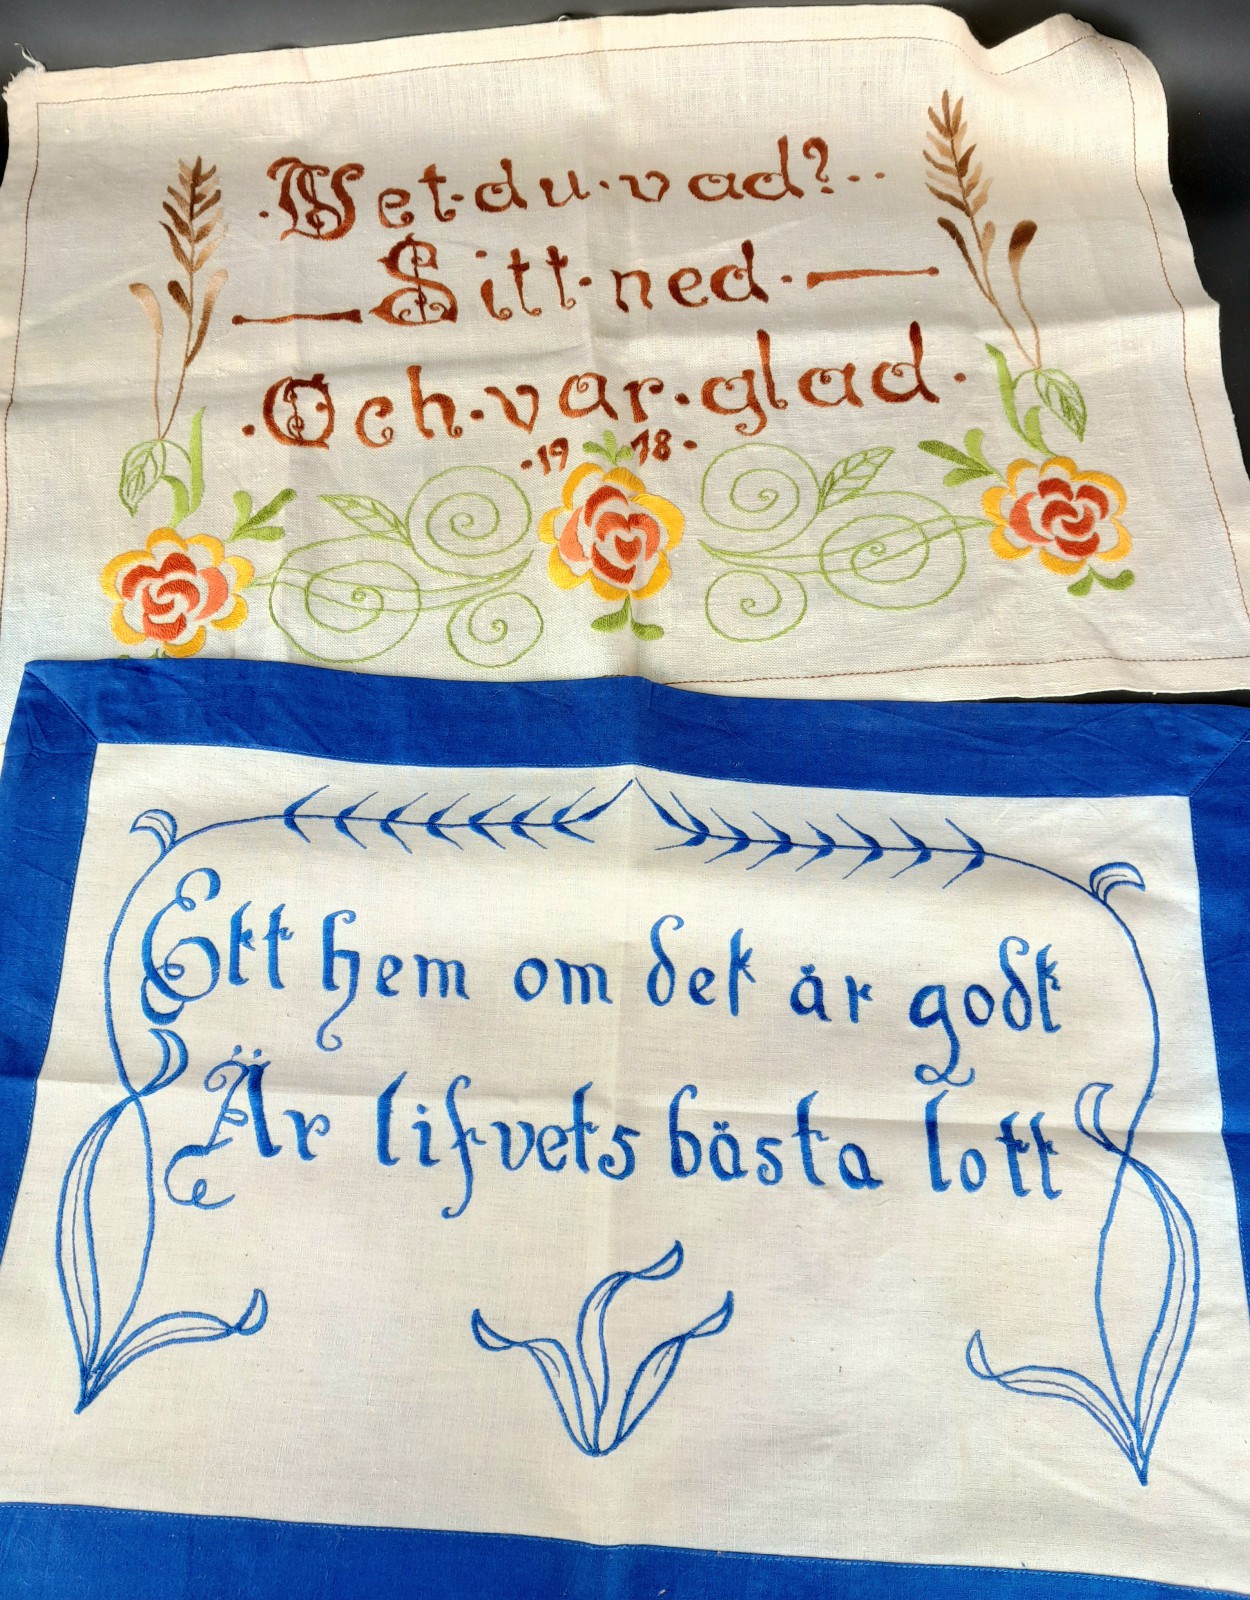 ·Wet·du·vad?··
Sitt·ned·
·Och·var·glad·
·19 18·
Ett hem om det är godt
Är lifvets bästa lott